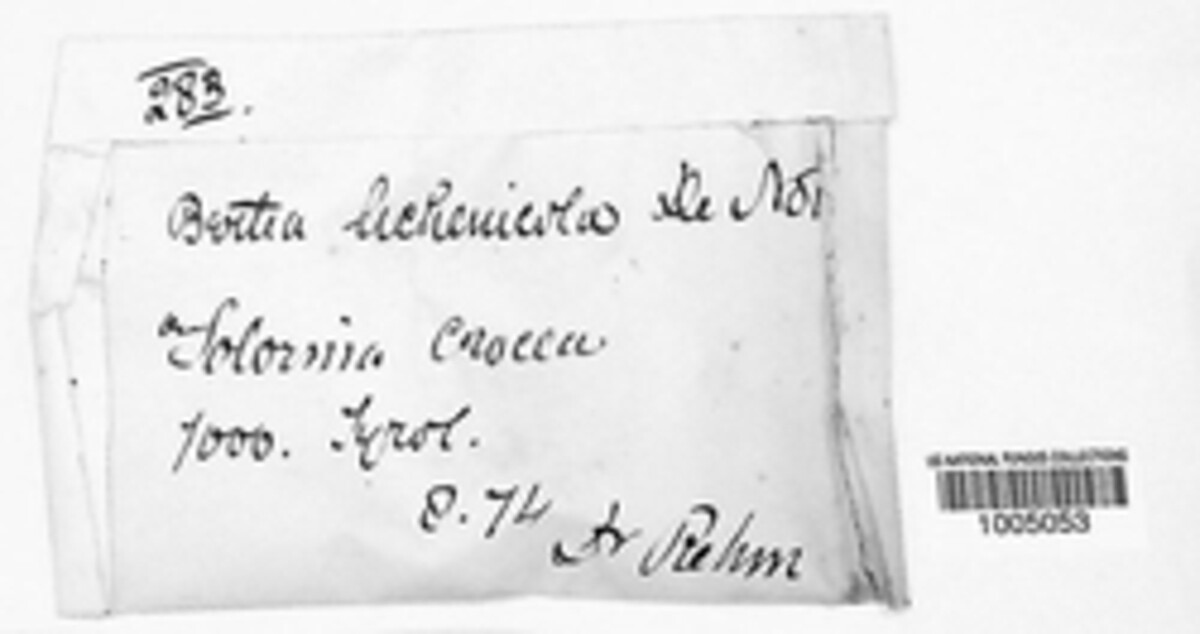 283.
Bertia lichenicola De Not
Solorina crocea
7000. Tyrol.
8.74
Dr Rehm
US NATIONAL FUNGUS COLLECTIONS
1005053